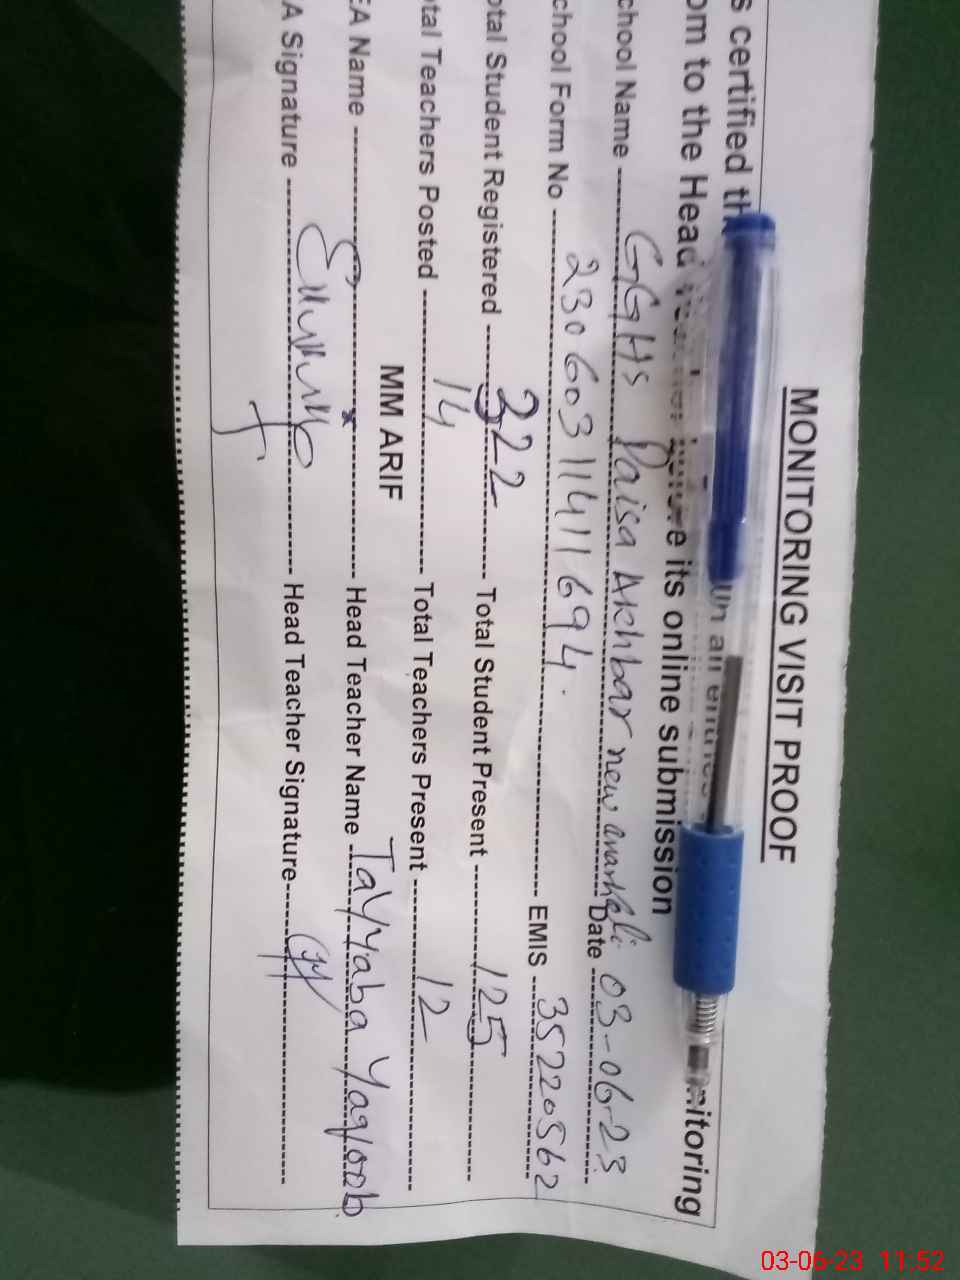 MONITORING VISIT PROOF
s certified th un all entries
om to the Head before its online submission
chool Name GGHS Paisa Akhbar new anarkali Date 03-06-23
chool Form No 23060311411694. EMIS 35220562
otal Student Registered 322 Total Student Present 125
otal Teachers Posted 14 Total Teachers Present 12
MM ARIF
EA Name Head Teacher Name Tayyaba Yaqloob
A Signature Head Teacher Signature
nitoring
03-06-23 11:52